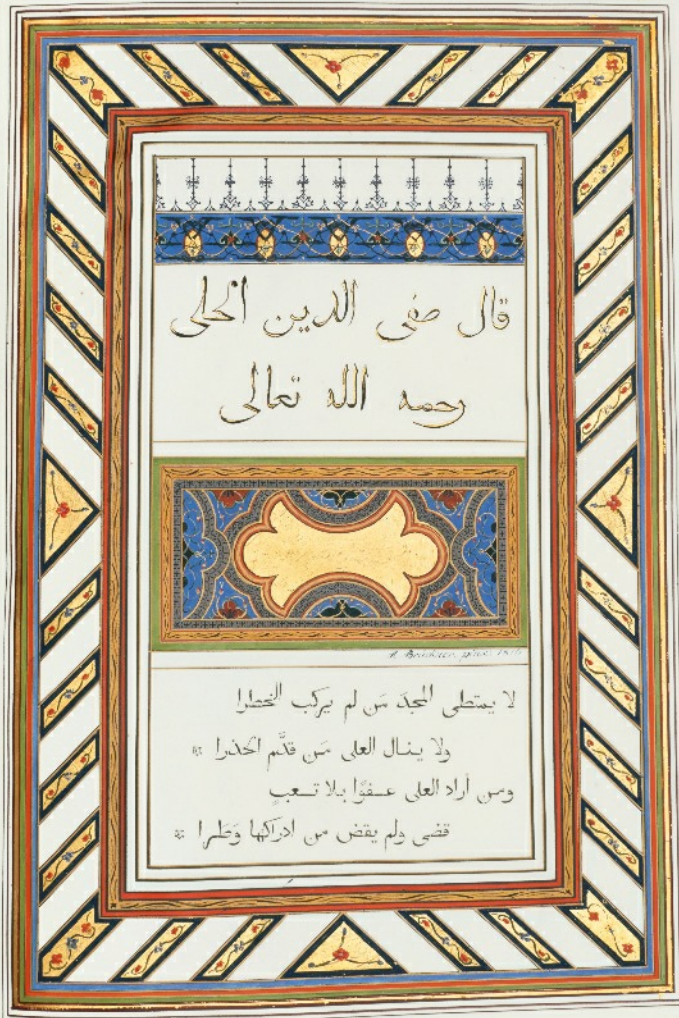 قال صفى الدين الحلى
رحمه الله تعالى
لا يمتطى المجدَ مَن لم يركب الخطرا
ولا ينال العلى مَن قدَّم الحذرا
ومن أراد العلى عفوًا بلا تعبٍ
قضى ولم يقض من ادراكها وَطَرا